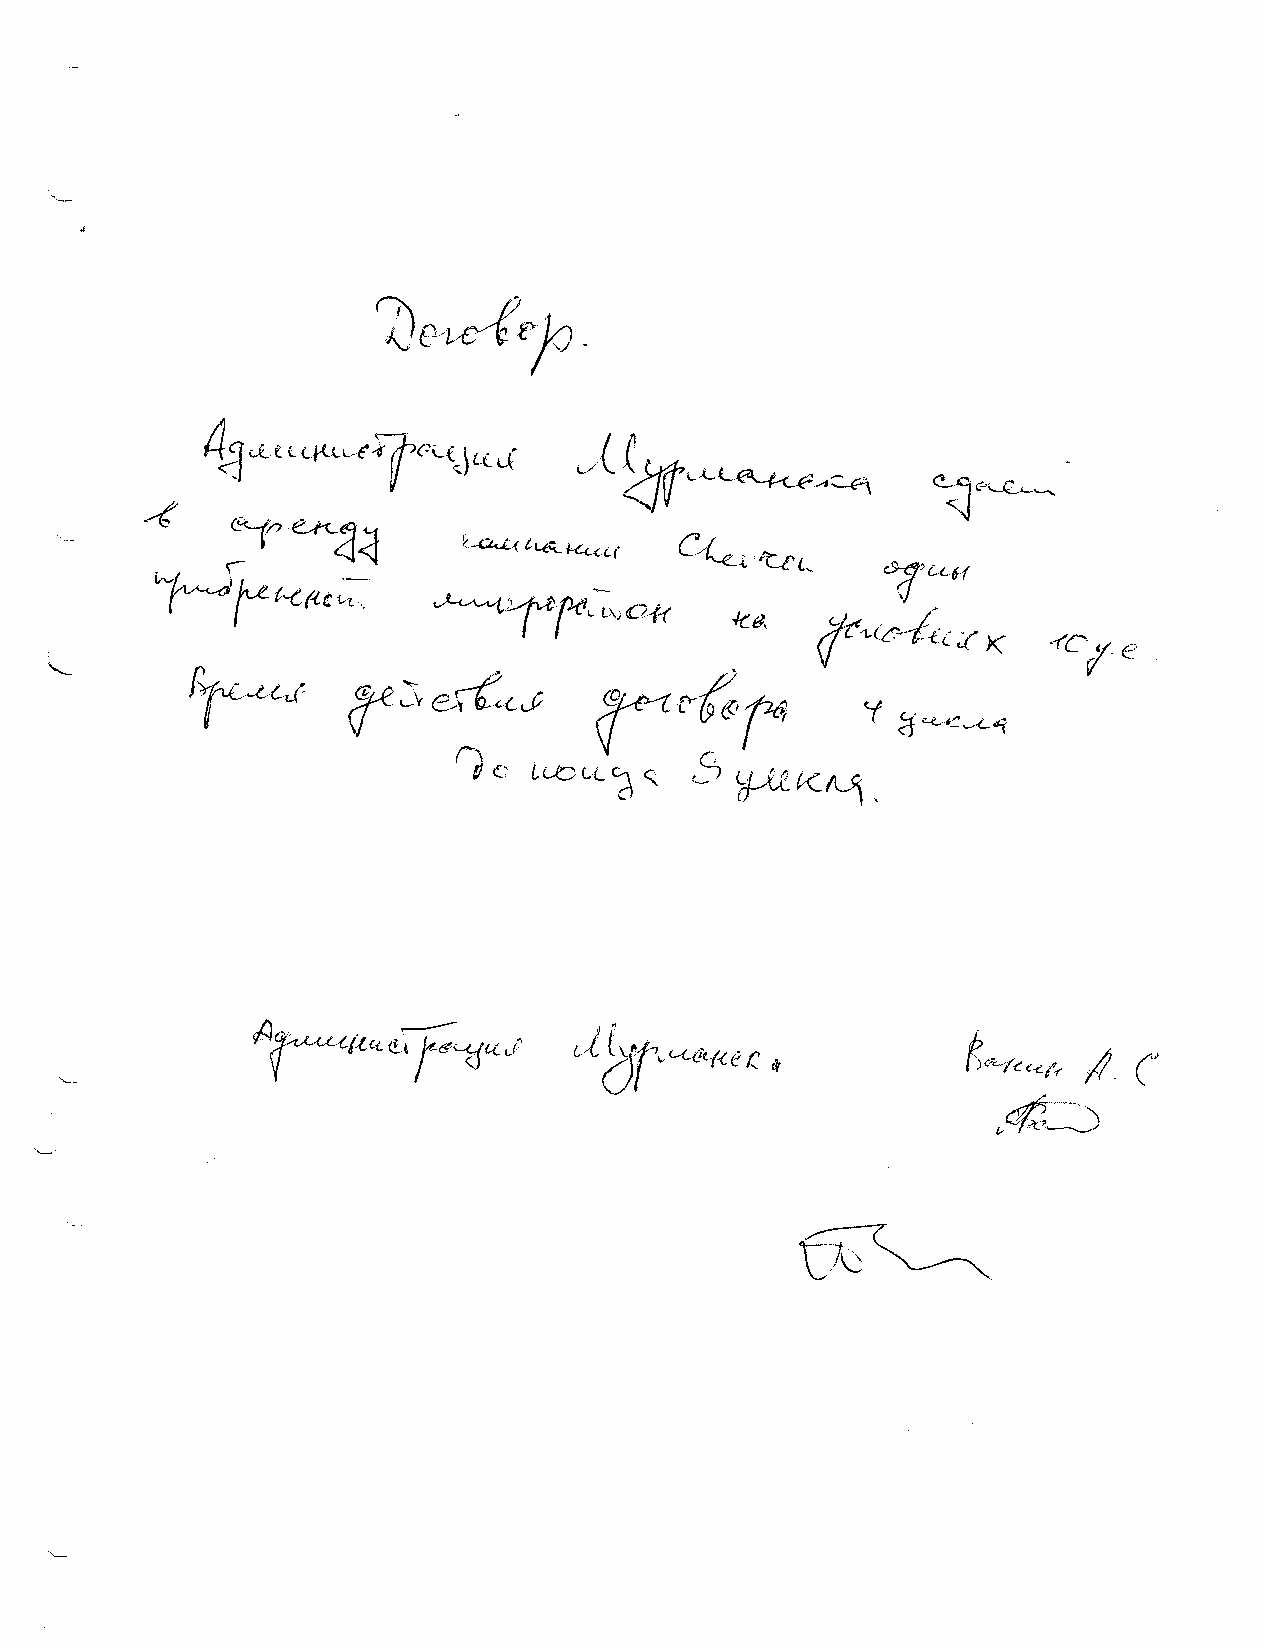 Договор.
Администрация Мурманска сдает
в аренду компании один
прибрежный микрорайон на условиях 10 у.е.
Время действия договора 4 цикла
До конца 5 цикла.
Администрация Мурманска Ванин А. С